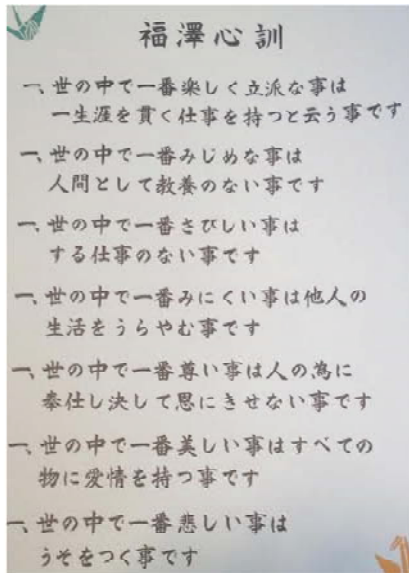 福澤心訓
一、世の中で一番楽しく立派な事は
一生涯を貫く仕事を持つと云う事です
一、世の中で一番みじめな事は
人間として教養のない事です
一、世の中で一番さびしい事は
する仕事のない事です
一、世の中で一番みにくい事は他人の
生活をうらやむ事です
一、世の中で一番尊い事は人の為に
奉仕し決して恩にきせない事です
一、世の中で一番美しい事はすべての
物に愛情を持つ事です
一、世の中で一番悲しい事は
うそをつく事です